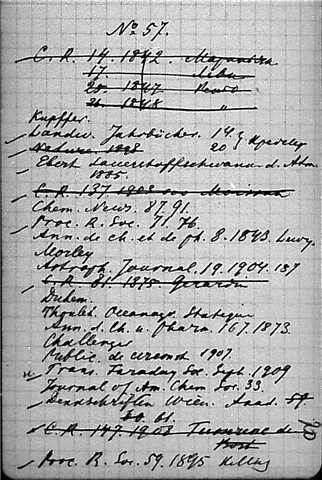 No 57.
C. R. 14. 1842.
17.
20. 1847
26. 1848 "
Kupffer.
Landw. Jahrbücher. 14.
Nature 1888 20
Ebert Sauerstoffschwank. d. Atm
1885.
C. R. 137 1903
Chem. News. 87. 91.
Proc. R. Soc. 71. 76.
Ann. de ch. et de ph. 8. 1843. Lewy.
Morley
Astroph. Journal. 19. 1904. 137
C. R. 81. 1875.
Duhem.
Thoulet. Oceanogr. Statique
Ann. d. Ch. u. Pharm. 167. 1873.
Challenger
Public. de circonst 1907.
Trans. Faraday Soc. Sept. 1909
Journal of Am. Chem Soc. 33.
Denkschriften Wien. Acad. 59.
60. 61.
C. R. 147. 1908
Proc. R. Soc. 59. 1895